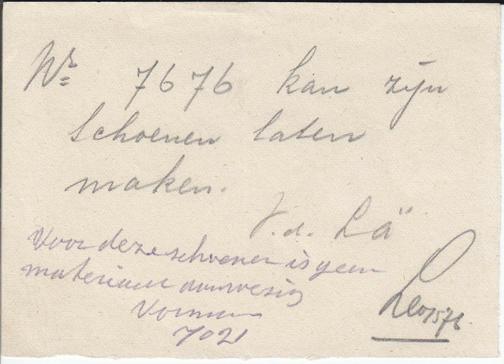 Nr 7676 kan zijn
schoenen laten
maken.
V. d. Lä
Voor deze schoenen is geen
materiaal aanwezig
7021